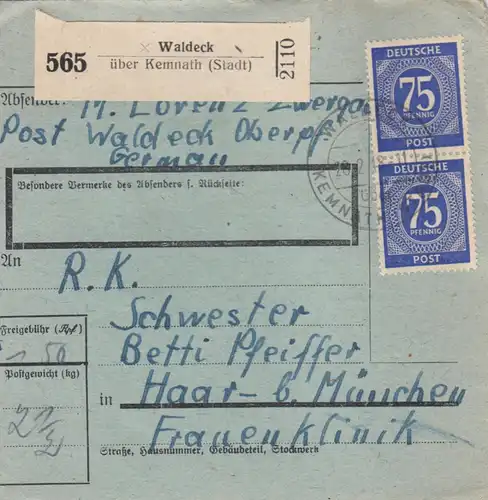 565
Waldeck
über Kemnath (Stadt)
2110
DEUTSCHE
75
PFENNIG
POST
DEUTSCHE
75
PFENNIG
POST
Absender: M. Lorenz
Post Waldeck Oberpf
German
Besondere Vermerke des Absenders s. Rückseite:
KEMNATH
An
R. K.
Schwester
Betti Pfeiffer
in Haar b. München
Frauenklinik
Straße, Hausnummer, Gebäudeteil, Stockwerk
Freigebühr (Rpf)
1 50
Postgewicht (kg)